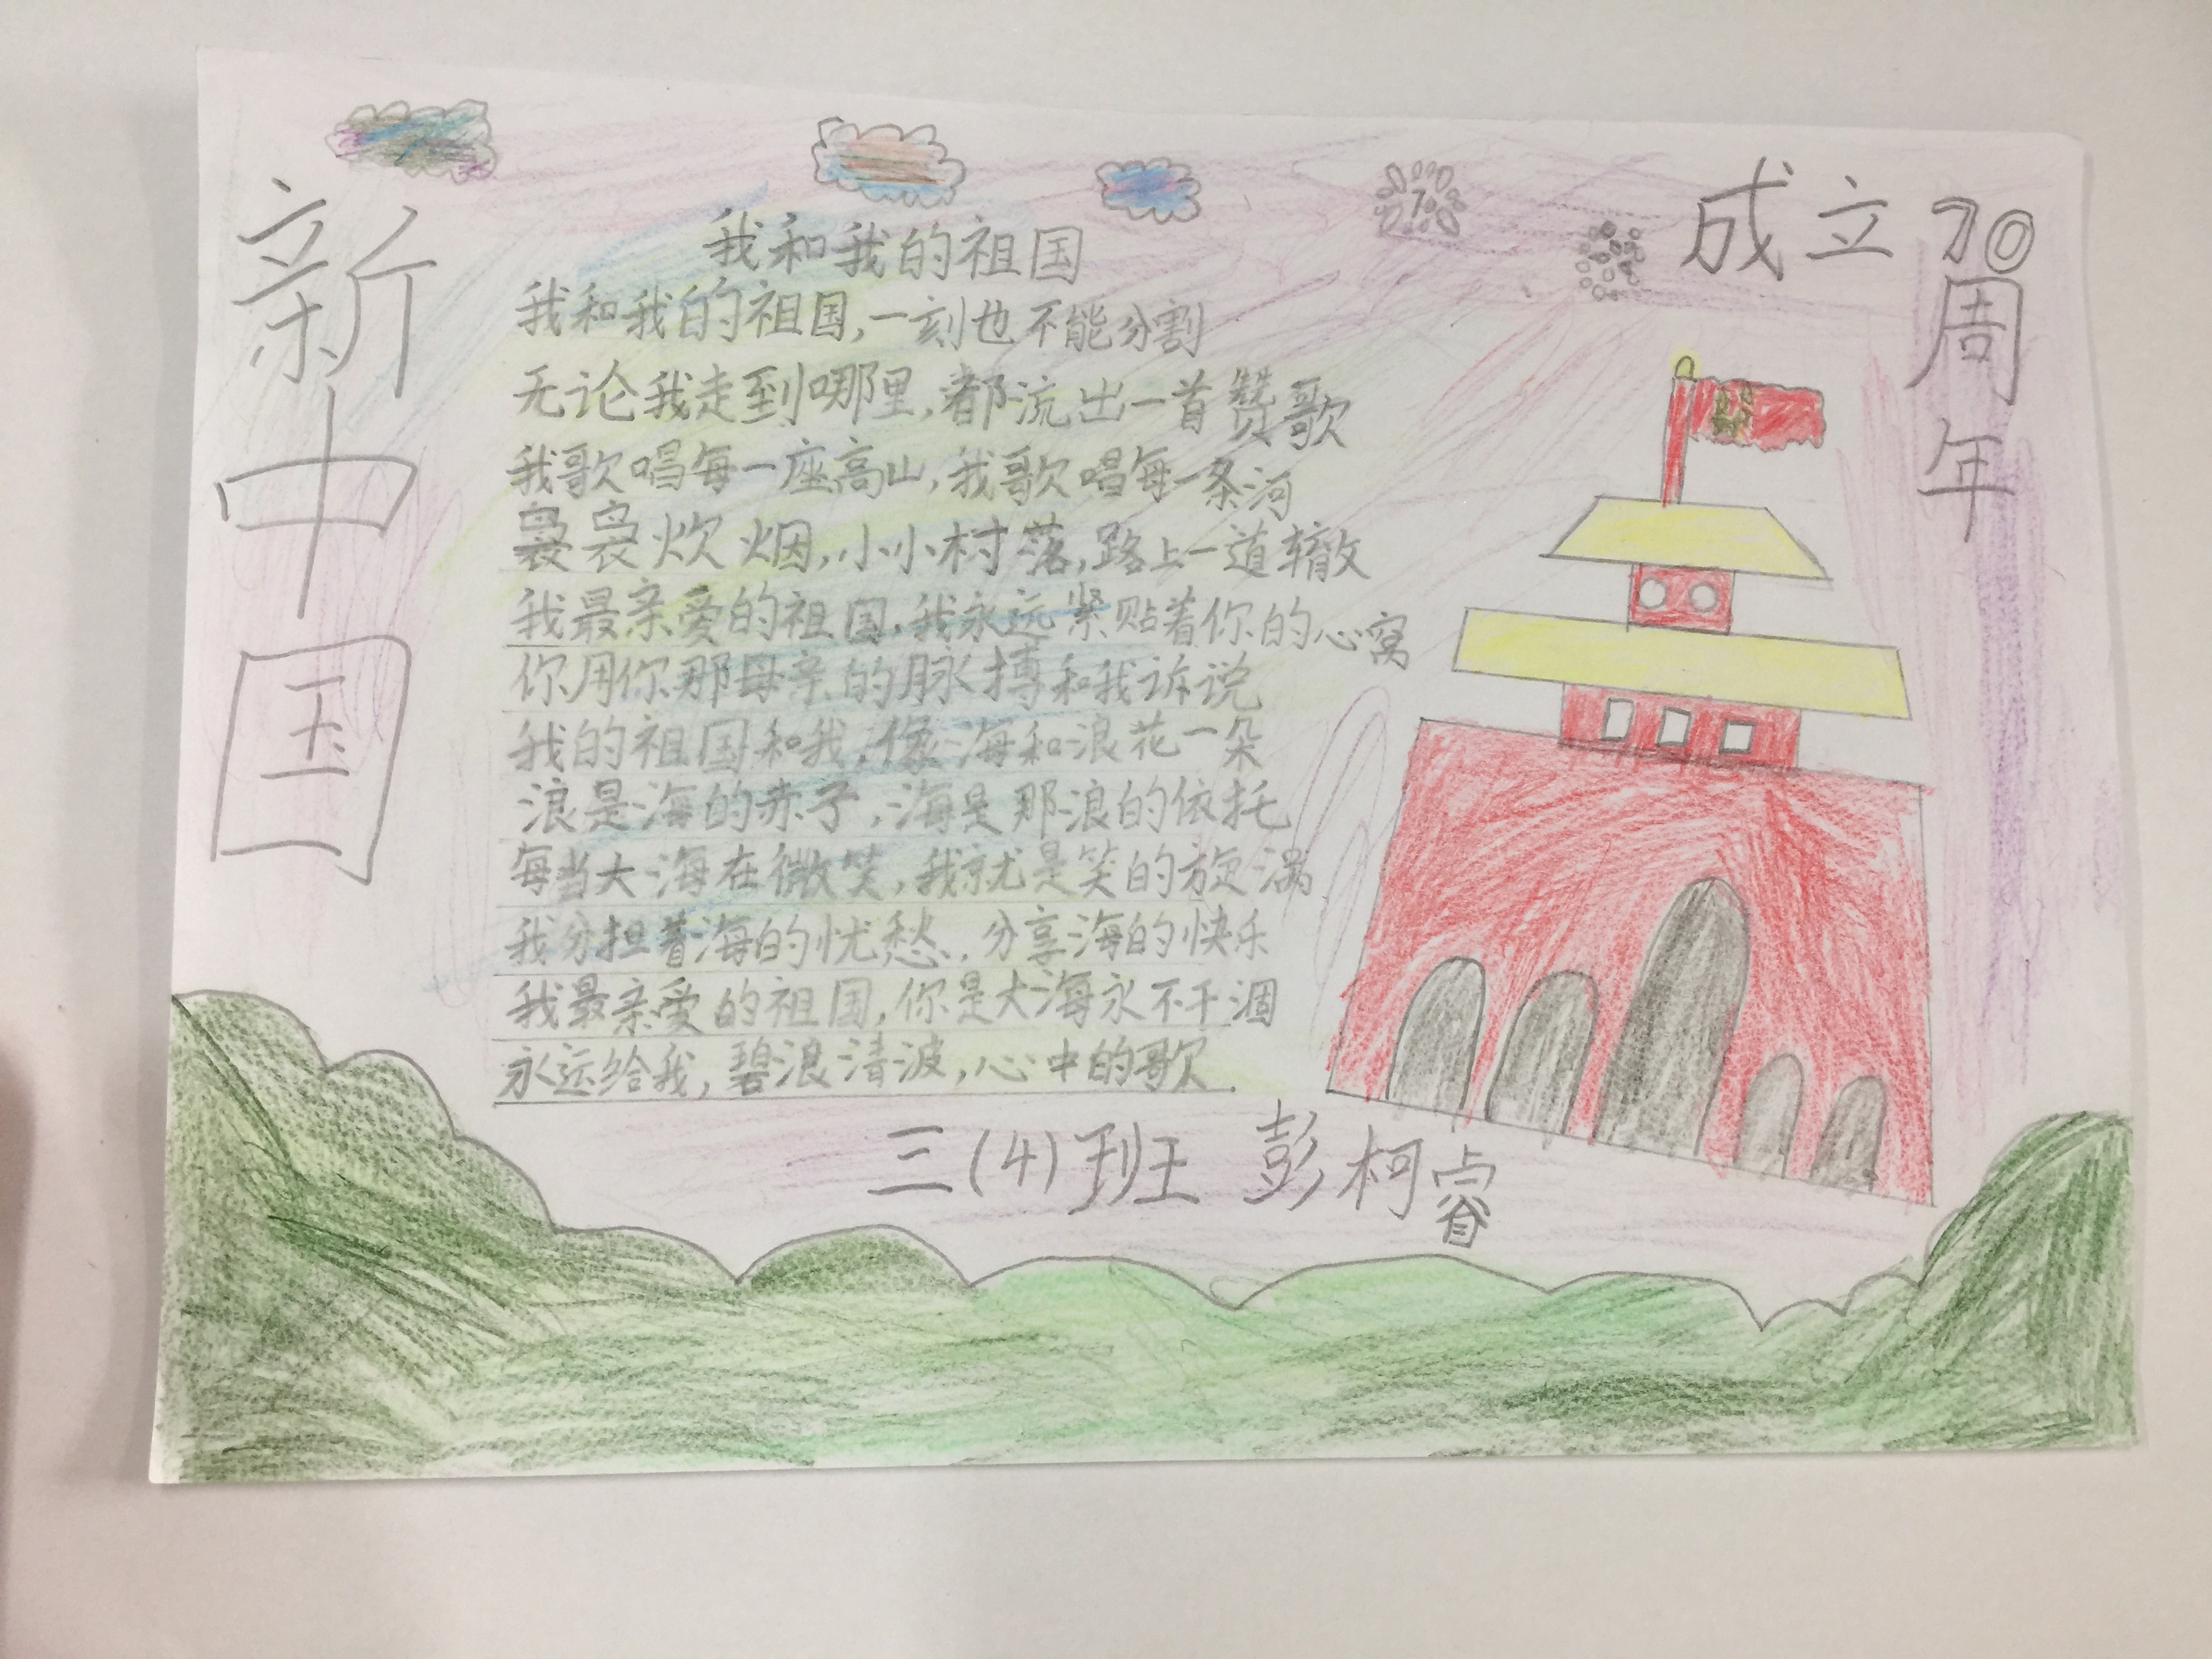 新中国
成立70
周年
我和我的祖国
我和我的祖国,一刻也不能分割
无论我走到哪里,都流出一首赞歌
我歌唱每一座高山,我歌唱每一条河
袅袅炊烟,小小村落,路上一道辙
我最亲爱的祖国,我永远紧贴着你的心窝
你用你那母亲的脉搏和我诉说
我的祖国和我,像海和浪花一朵
浪是海的赤子,海是那浪的依托
每当大海在微笑,我就是笑的旋涡
我分担着海的忧愁,分享海的快乐
我最亲爱的祖国,你是大海永不干涸
永远给我,碧浪清波,心中的歌.
三(4)班 彭柯睿